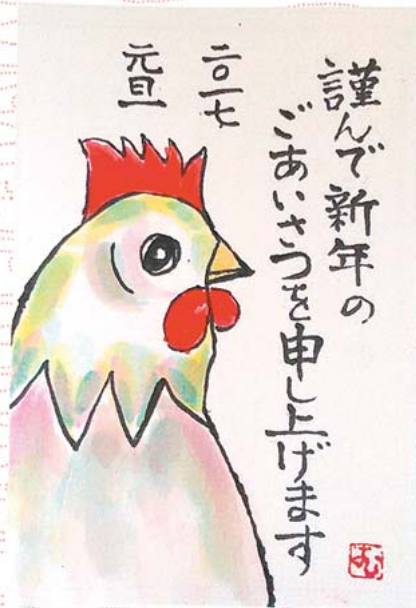 謹んで新年の
ごあいさつを申し上げます
二〇一七
元旦
はむ